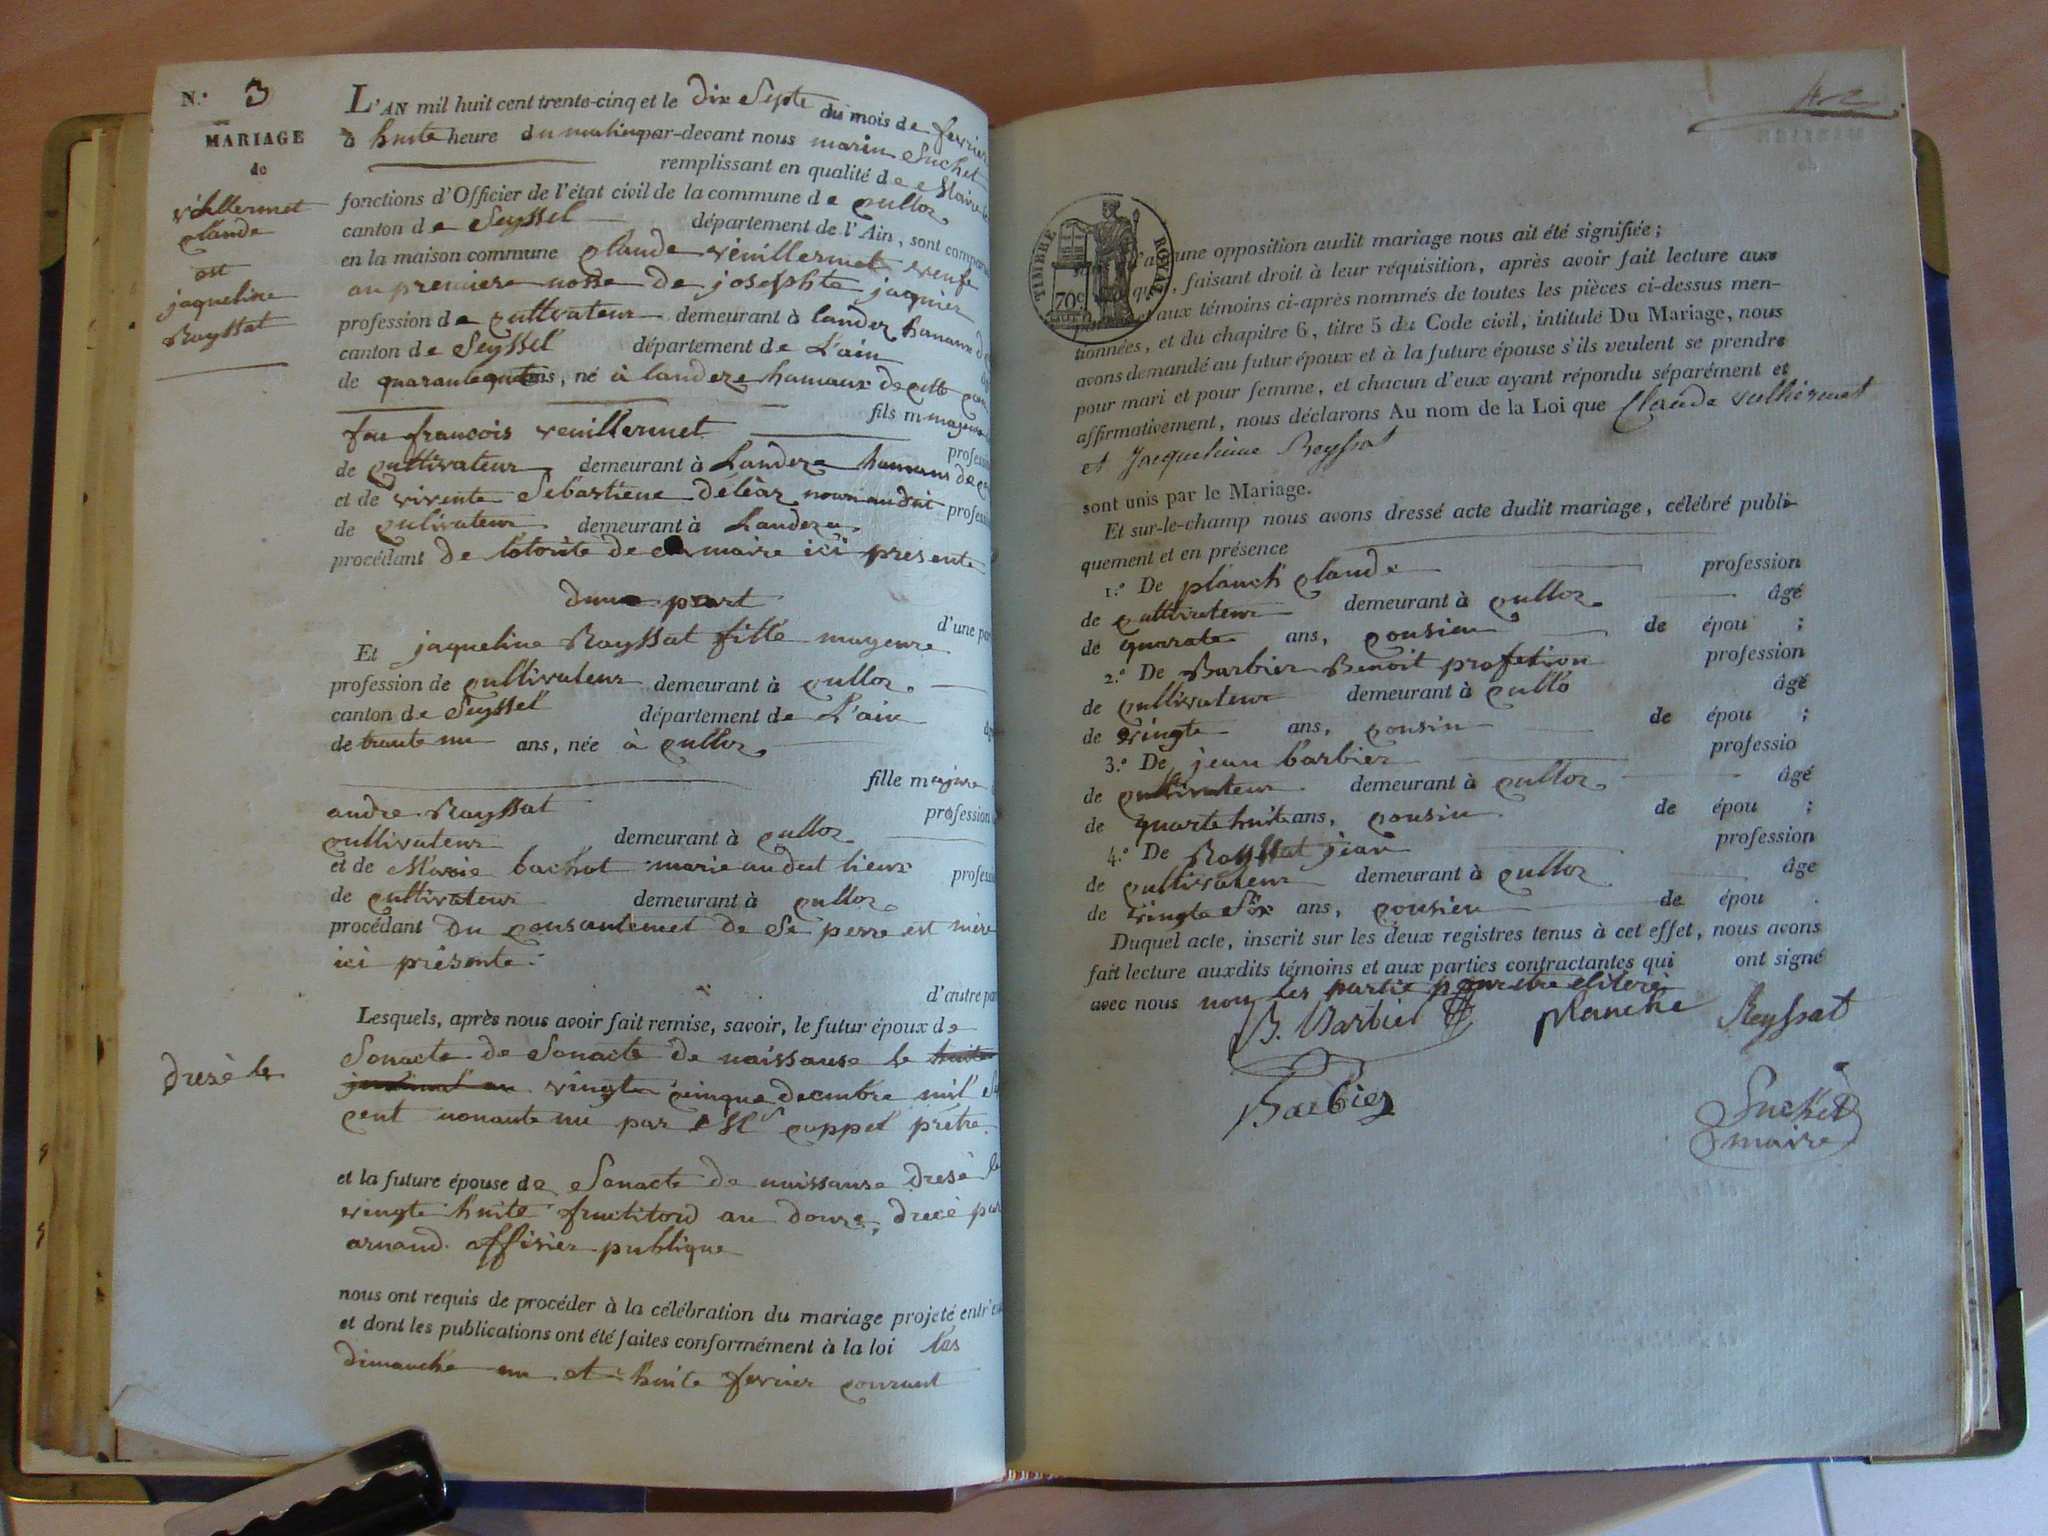 N.° 3
MARIAGE
de
vüllermet
claude
est
jaqueline
Rayssat
L'AN mil huit cent trente-cinq et le dix Septe du mois de fevrier
à huite heure du matin par-devant nous marin Suchet
remplissant en qualité de Maire
fonctions d'Officier de l'état civil de la commune de culloz
canton de Seyssel département de l'Ain, sont comparus
en la maison commune claude veuillermet veufe
au premiere nosse de josephte jaquier
profession de cultivateur demeurant à landez hamaux de
canton de Seyssel département de L'ain
de quarante ans, né à landeze hamaux de
fils m majeur
feu francois veuillermet
profession
de cultivateur demeurant à Landeze hamaux de
et de vivente Sebastiene déléar audit profession
de culivateur demeurant à Landeze
procédant de lotorite de maire ici presente
dune part
d'une part
Et jaqueline Rayssat fille mayeure
profession de cultivateur demeurant à culloz
canton de Seyssel département de L'ain
de trante un ans, née à culloz
fille majure
andre Rayssat
profession
cultivateur demeurant à culloz
et de Marie bachot marie audit lieux profession
de cultivateur demeurant à culloz
procédant du consantemet de Se perre est mère
ici présente.
d'autre part
Lesquels, après nous avoir fait remise, savoir, le futur époux de
Sonacte de Sonacte de naissanse le huite
dresè le
vingte cinque decmbre mil
cent nonante un par Mr coppel prêtre
et la future épouse de Sonacte de naissanse dresè le
vingte huite fructitord an douze, drecè par
arnaud offisier publique
nous ont requis de procéder à la célébration du mariage projeté entr'eux
et dont les publications ont été faites conformément à la loi les
dimanche un et huite fevrier courant
TIMBRE ROYAL
70c
une opposition audit mariage nous ait été signifiée;
faisant droit à leur réquisition, après avoir fait lecture aux
aux témoins ci-après nommés de toutes les pièces ci-dessus men-
tionnées, et du chapitre 6, titre 5 du Code civil, intitulé Du Mariage, nous
avons demandé au futur époux et à la future épouse s'ils veulent se prendre
pour mari et pour femme, et chacun d'eux ayant répondu séparément et
affirmativement, nous déclarons Au nom de la Loi que Claude vulliermet
et Jacqueline Reyssat
sont unis par le Mariage.
Et sur-le-champ nous avons dressé acte dudit mariage, célébré publi-
quement et en présence
1.° De planch claude profession
de cultivateur demeurant à culloz âgé
de quarate ans, cousien de épou ;
2.° De Barbier Benoit profetion profession
de cultivateur demeurant à cullo âgé
de vingte ans, cousin de épou ;
3.° De jean barbier professio
de cultivateur demeurant à culloz âgé
de quarte huite ans, cousin de épou ;
4.° De Rayssat jean profession
de cultivateur demeurant à culloz âge
de vingte Six ans, cousien de épou .
Duquel acte, inscrit sur les deux registres tenus à cet effet, nous avons
fait lecture auxdits témoins et aux parties contractantes qui ont signé
avec nous non les partie pour etre elitere
B. Barbier Planche Reyssat
Barbier
Suchet
maire